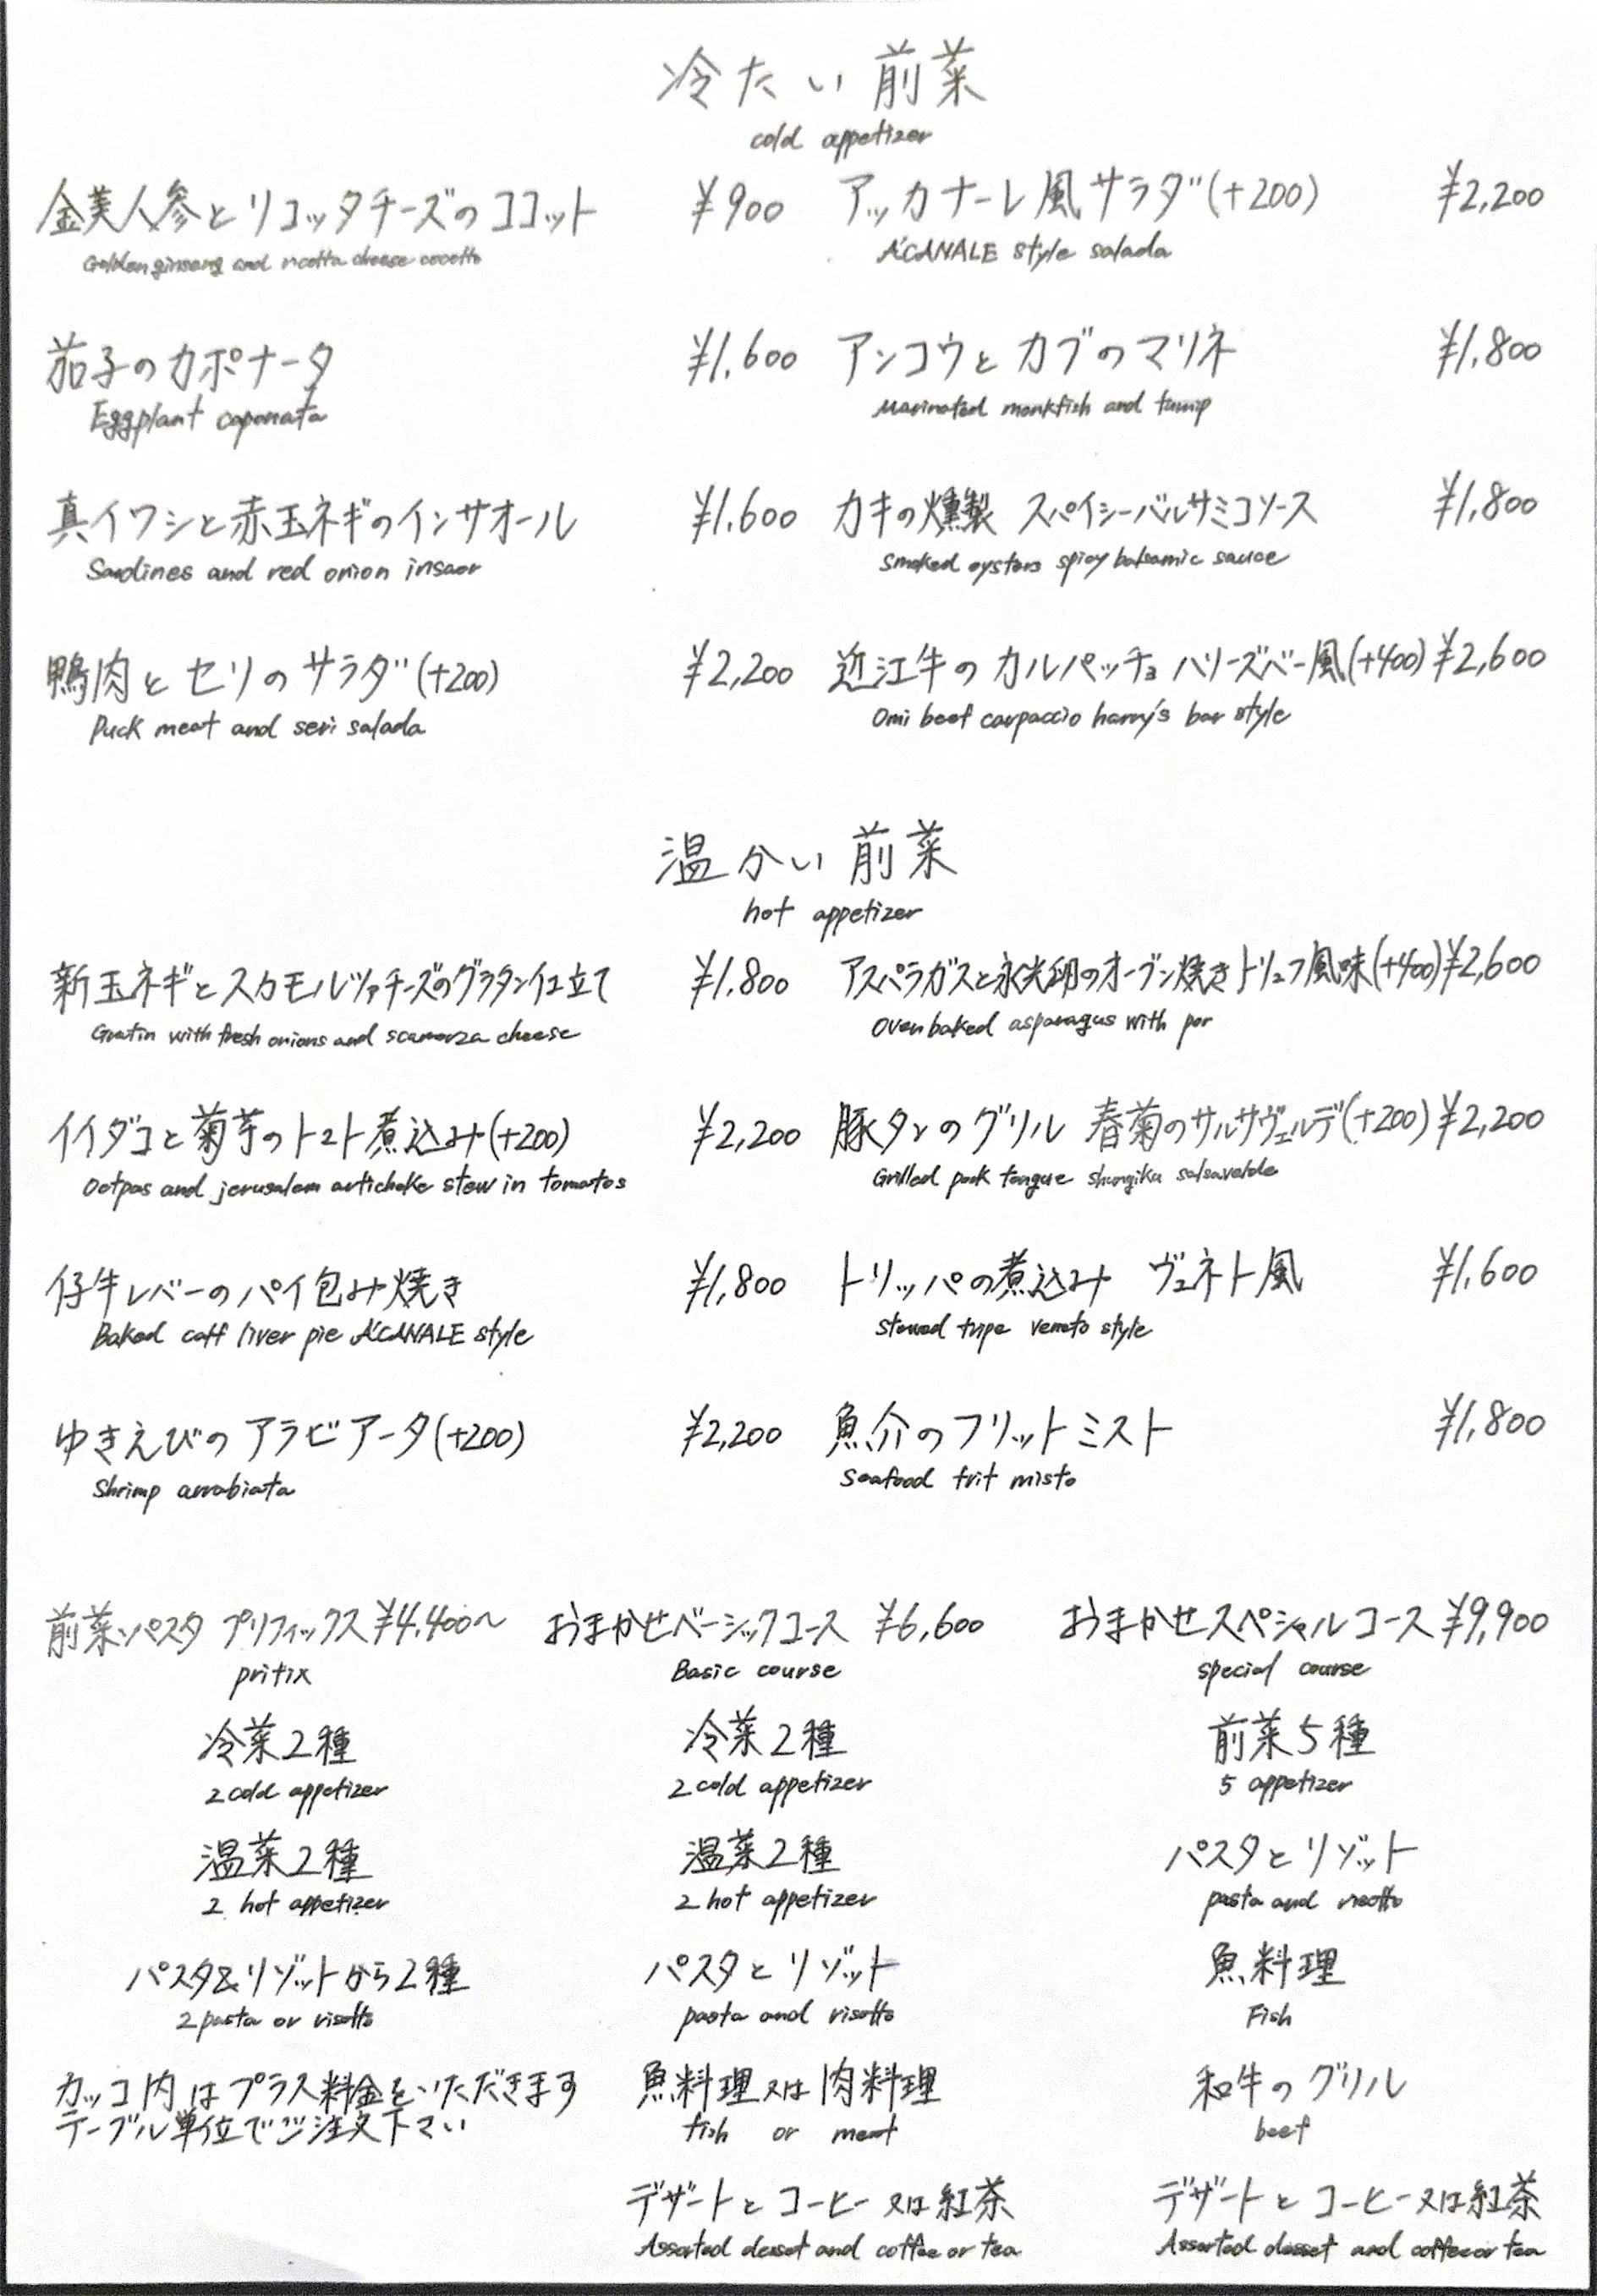 冷たい前菜
cold appetizer
金美人参とリコッタチーズのココット ¥900
Golden ginseng and ricotta cheese cocotto
アッカナーレ風サラダ(+200) ¥2,200
A'CANALE style salada
茄子のカポナータ ¥1,600
Eggplant caponata
アンコウとカブのマリネ ¥1,800
Marinated monkfish and turnip
真イワシと赤玉ネギのインサオール ¥1,600
Sardines and red onion insaor
カキの燻製 スパイシーバルサミコソース ¥1,800
Smoked oysters spicy balsamic sauce
鴨肉とセリのサラダ(+200) ¥2,200
Duck meat and seri salada
近江牛のカルパッチョ ハリーズバー風(+400) ¥2,600
Omi beef carpaccio harry's bar style
温かい前菜
hot appetizer
新玉ネギとスカモルツァチーズのグラタン仕立て ¥1,800
Gratin with fresh onions and scamorza cheese
アスパラガスと永光卵のオーブン焼きトリュフ風味(+400) ¥2,600
Oven baked asparagus with por
イイダコと菊芋のトマト煮込み(+200) ¥2,200
Octpas and jerusalem artichoke stew in tomatos
豚タンのグリル 春菊のサルサヴェルデ(+200) ¥2,200
Grilled pork tongue shungiku salsavelde
仔牛レバーのパイ包み焼き ¥1,800
Baked calf liver pie A'CANALE style
トリッパの煮込み ヴェネト風 ¥1,600
Stewed tripe veneto style
ゆきえびのアラビアータ(+200) ¥2,200
Shrimp arrabiata
魚介のフリットミスト ¥1,800
Seafood frit misto
前菜・パスタ プリフィックス ¥4,400〜
prifix
冷菜2種
2 cold appetizer
温菜2種
2 hot appetizer
パスタ&リゾットから2種
2 pasta or risotto
カッコ内はプラス料金をいただきます
テーブル単位でご注文下さい
おまかせベーシックコース ¥6,600
Basic course
冷菜2種
2 cold appetizer
温菜2種
2 hot appetizer
パスタとリゾット
pasta and risotto
魚料理又は肉料理
fish or meat
デザートとコーヒー又は紅茶
Assorted desset and coffee or tea
おまかせスペシャルコース ¥9,900
special course
前菜5種
5 appetizer
パスタとリゾット
pasta and risotto
魚料理
Fish
和牛のグリル
beef
デザートとコーヒー又は紅茶
Assorted desset and coffee or tea